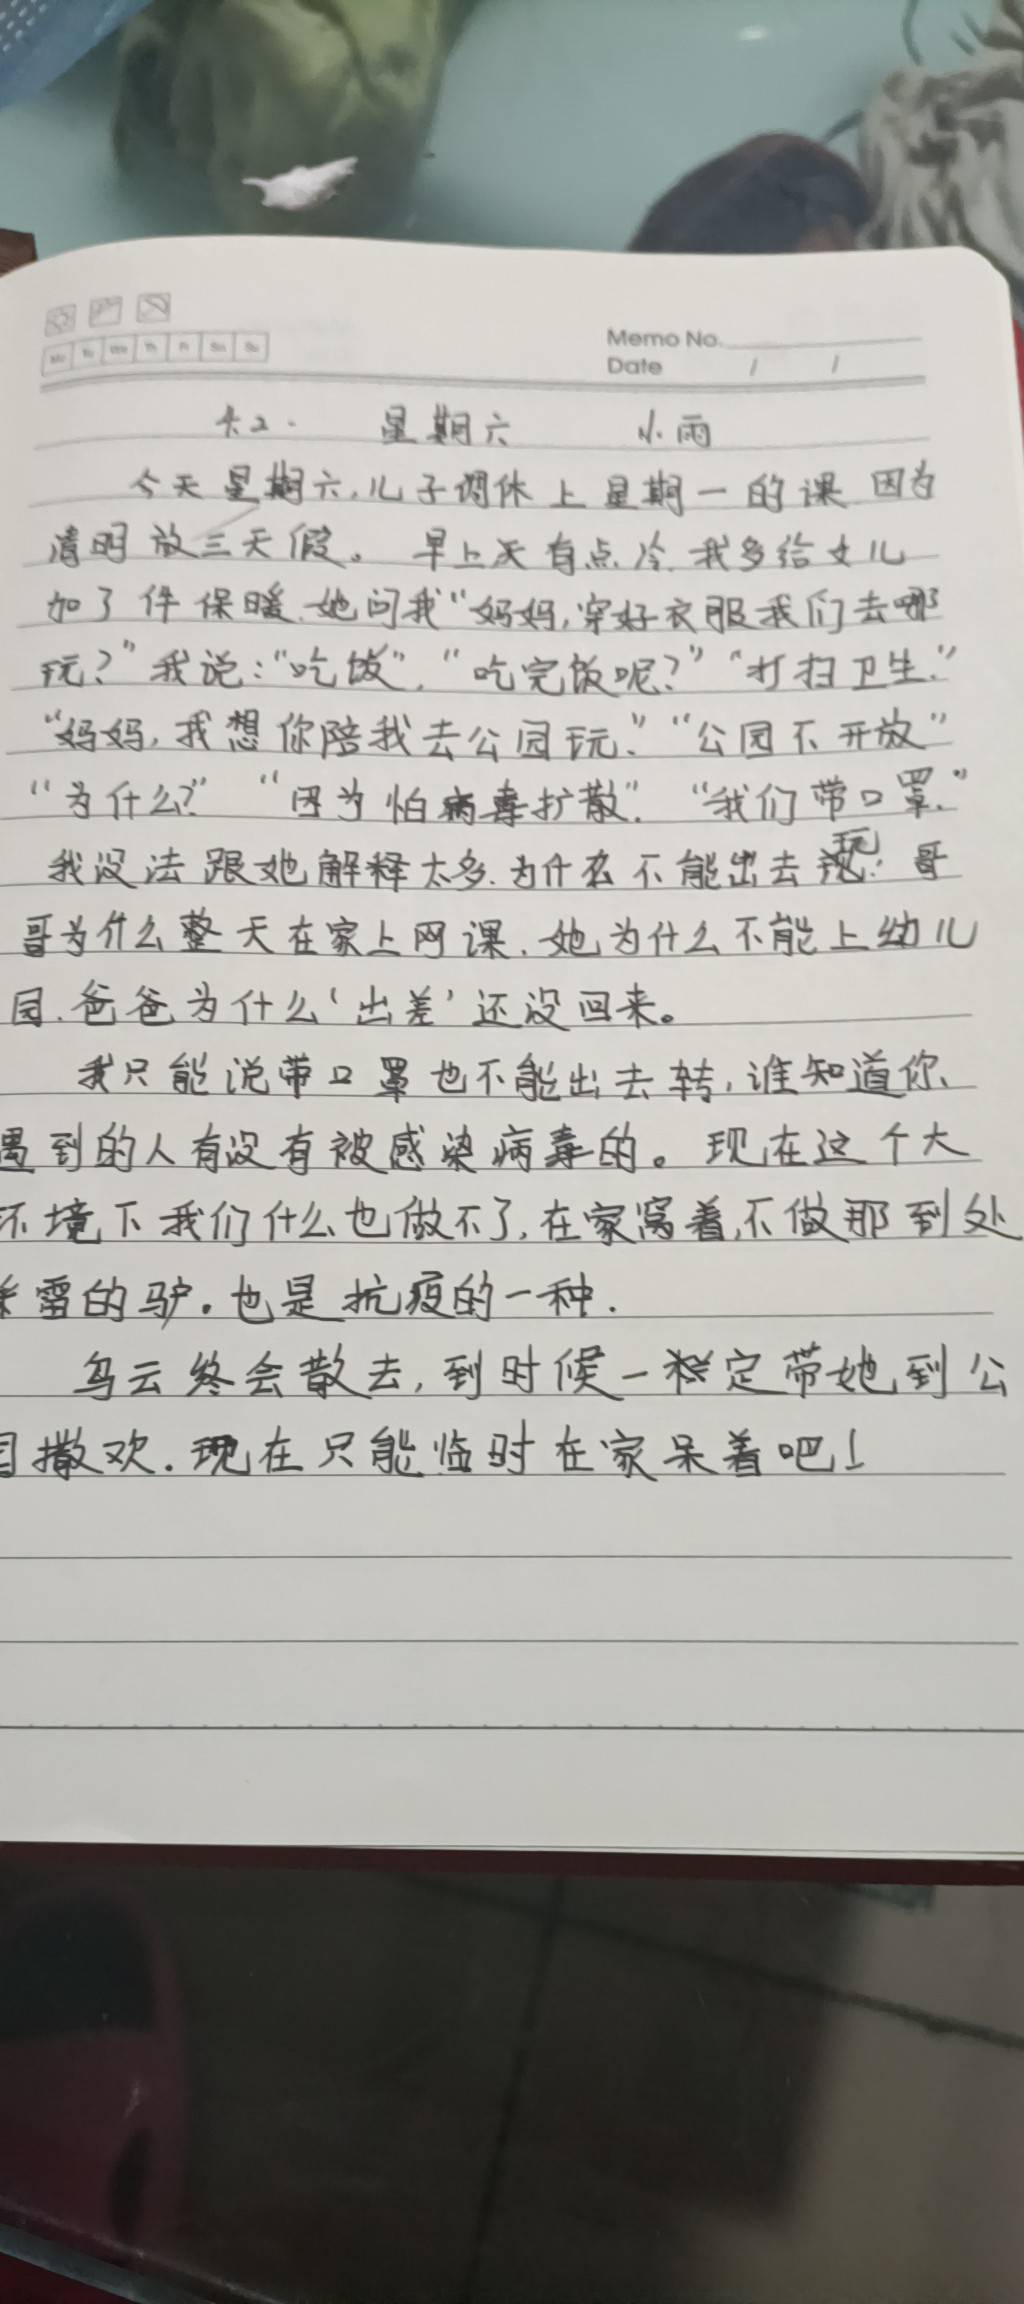 Memo No.
Date / /
4.2. 星期六 小雨
今天星期六,儿子调休上星期一的课 因为
清明放三天假。早上天有点冷.我多给女儿
加了件保暖.她问我“妈妈,穿好衣服我们去哪
玩?”我说:“吃饭”.“吃完饭呢?”“打扫卫生.”
“妈妈,我想你陪我去公园玩.”“公园不开放”
“为什么?”“因为怕病毒扩散”.“我们带口罩.”
我没法跟她解释太多.为什么不能出去玩.哥
哥为什么整天在家上网课.她为什么不能上幼儿
园.爸爸为什么‘出差’还没回来。
我只能说带口罩也不能出去转,谁知道你
遇到的人有没有被感染病毒的。现在这个大
环境下我们什么也做不了,在家窝着,不做那到处
雷的驴.也是抗疫的一种.
乌云终会散去,到时候一定带她到公
园撒欢.现在只能临时在家呆着吧!